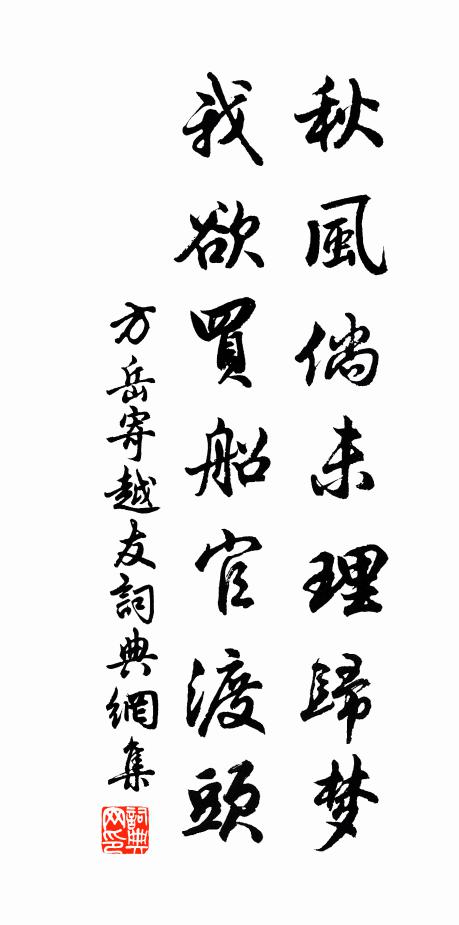 秋風倘未理歸梦
我欲買船官渡頭
方岳寄越友詞典網集
詞典網印